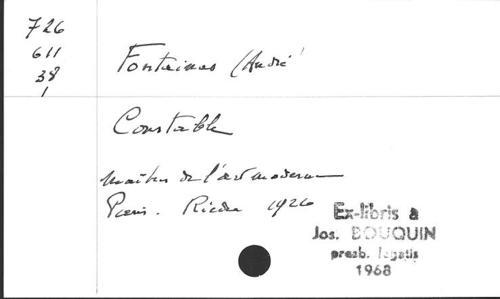 726
611
38
1
Fontainas (André)
Constable
Maîtres de l'art moderne
Paris. Rieder 1926
Ex-libris a
Jos. BOUQUIN
presb. legatis
1968